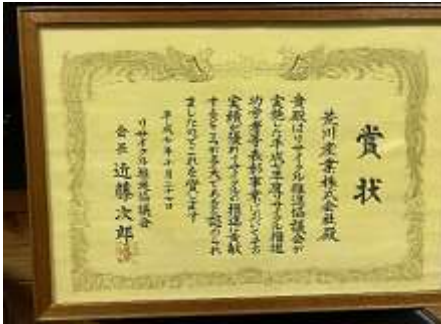 賞状
荒川産業株式会社殿
貴殿はリサイクル推進協議会が
実施した平成七年度リサイクル推進
功労者等表彰事業においてその
実績が優れリサイクルの推進に貢献
するところが多大であると認められ
ましたのでこれを賞します
平成七年十月二十七日
リサイクル推進協議会
会長 近藤次郎